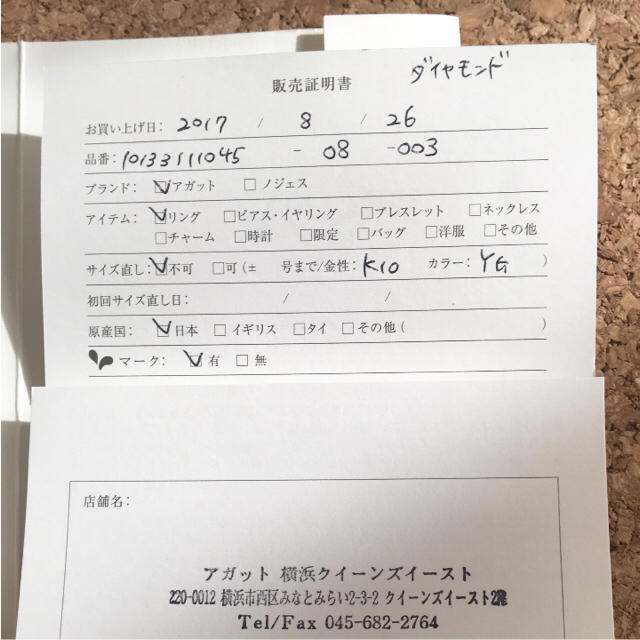 ダイヤモンド
販売証明書
お買い上げ日: 2017 / 8 / 26
品番: 10133111045 - 08 -003
ブランド: ☑アガット □ノジェス
アイテム: ☑リング □ピアス・イヤリング □ブレスレット □ネックレス
□チャーム □時計 □限定 □バッグ □洋服 □その他
サイズ直し: ☑不可 □可(± 号まで/金性: K10 カラー: YG )
初回サイズ直し日: / /
原産国: ☑日本 □イギリス □タイ □その他( )
マーク: ☑有 □無
店舗名:
アガット 横浜クイーンズイースト
220-0012 横浜市西区みなとみらい2-3-2 クイーンズイースト2階
Tel/Fax 045-682-2764